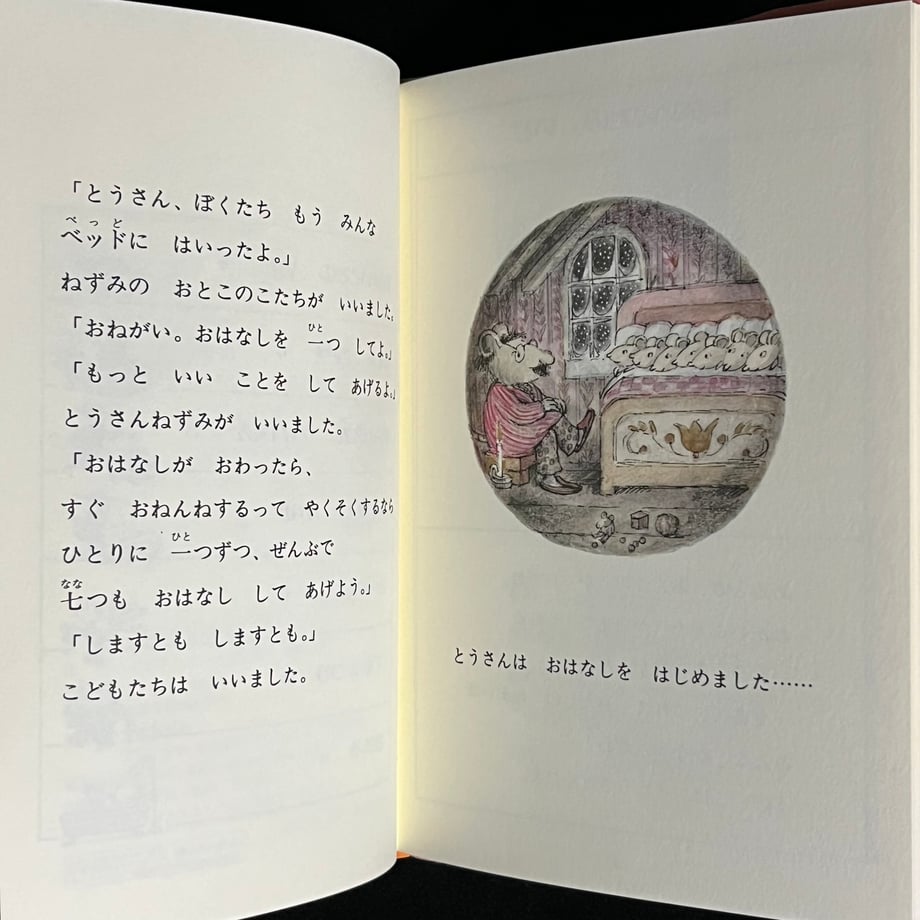 「とうさん、ぼくたち　もう　みんな
ベッドに　はいったよ。」
ねずみの　おとこのこたちが　いいました。
「おねがい。おはなしを　一つ　してよ。」
「もっと　いい　ことを　して　あげるよ。」
とうさんねずみが　いいました。
「おはなしが　おわったら、
すぐ　おねんねするって　やくそくするなら
ひとりに　一つずつ、ぜんぶで
七つも　おはなし　して　あげよう。」
「しますとも　しますとも。」
こどもたちは　いいました。
とうさんは　おはなしを　はじめました……